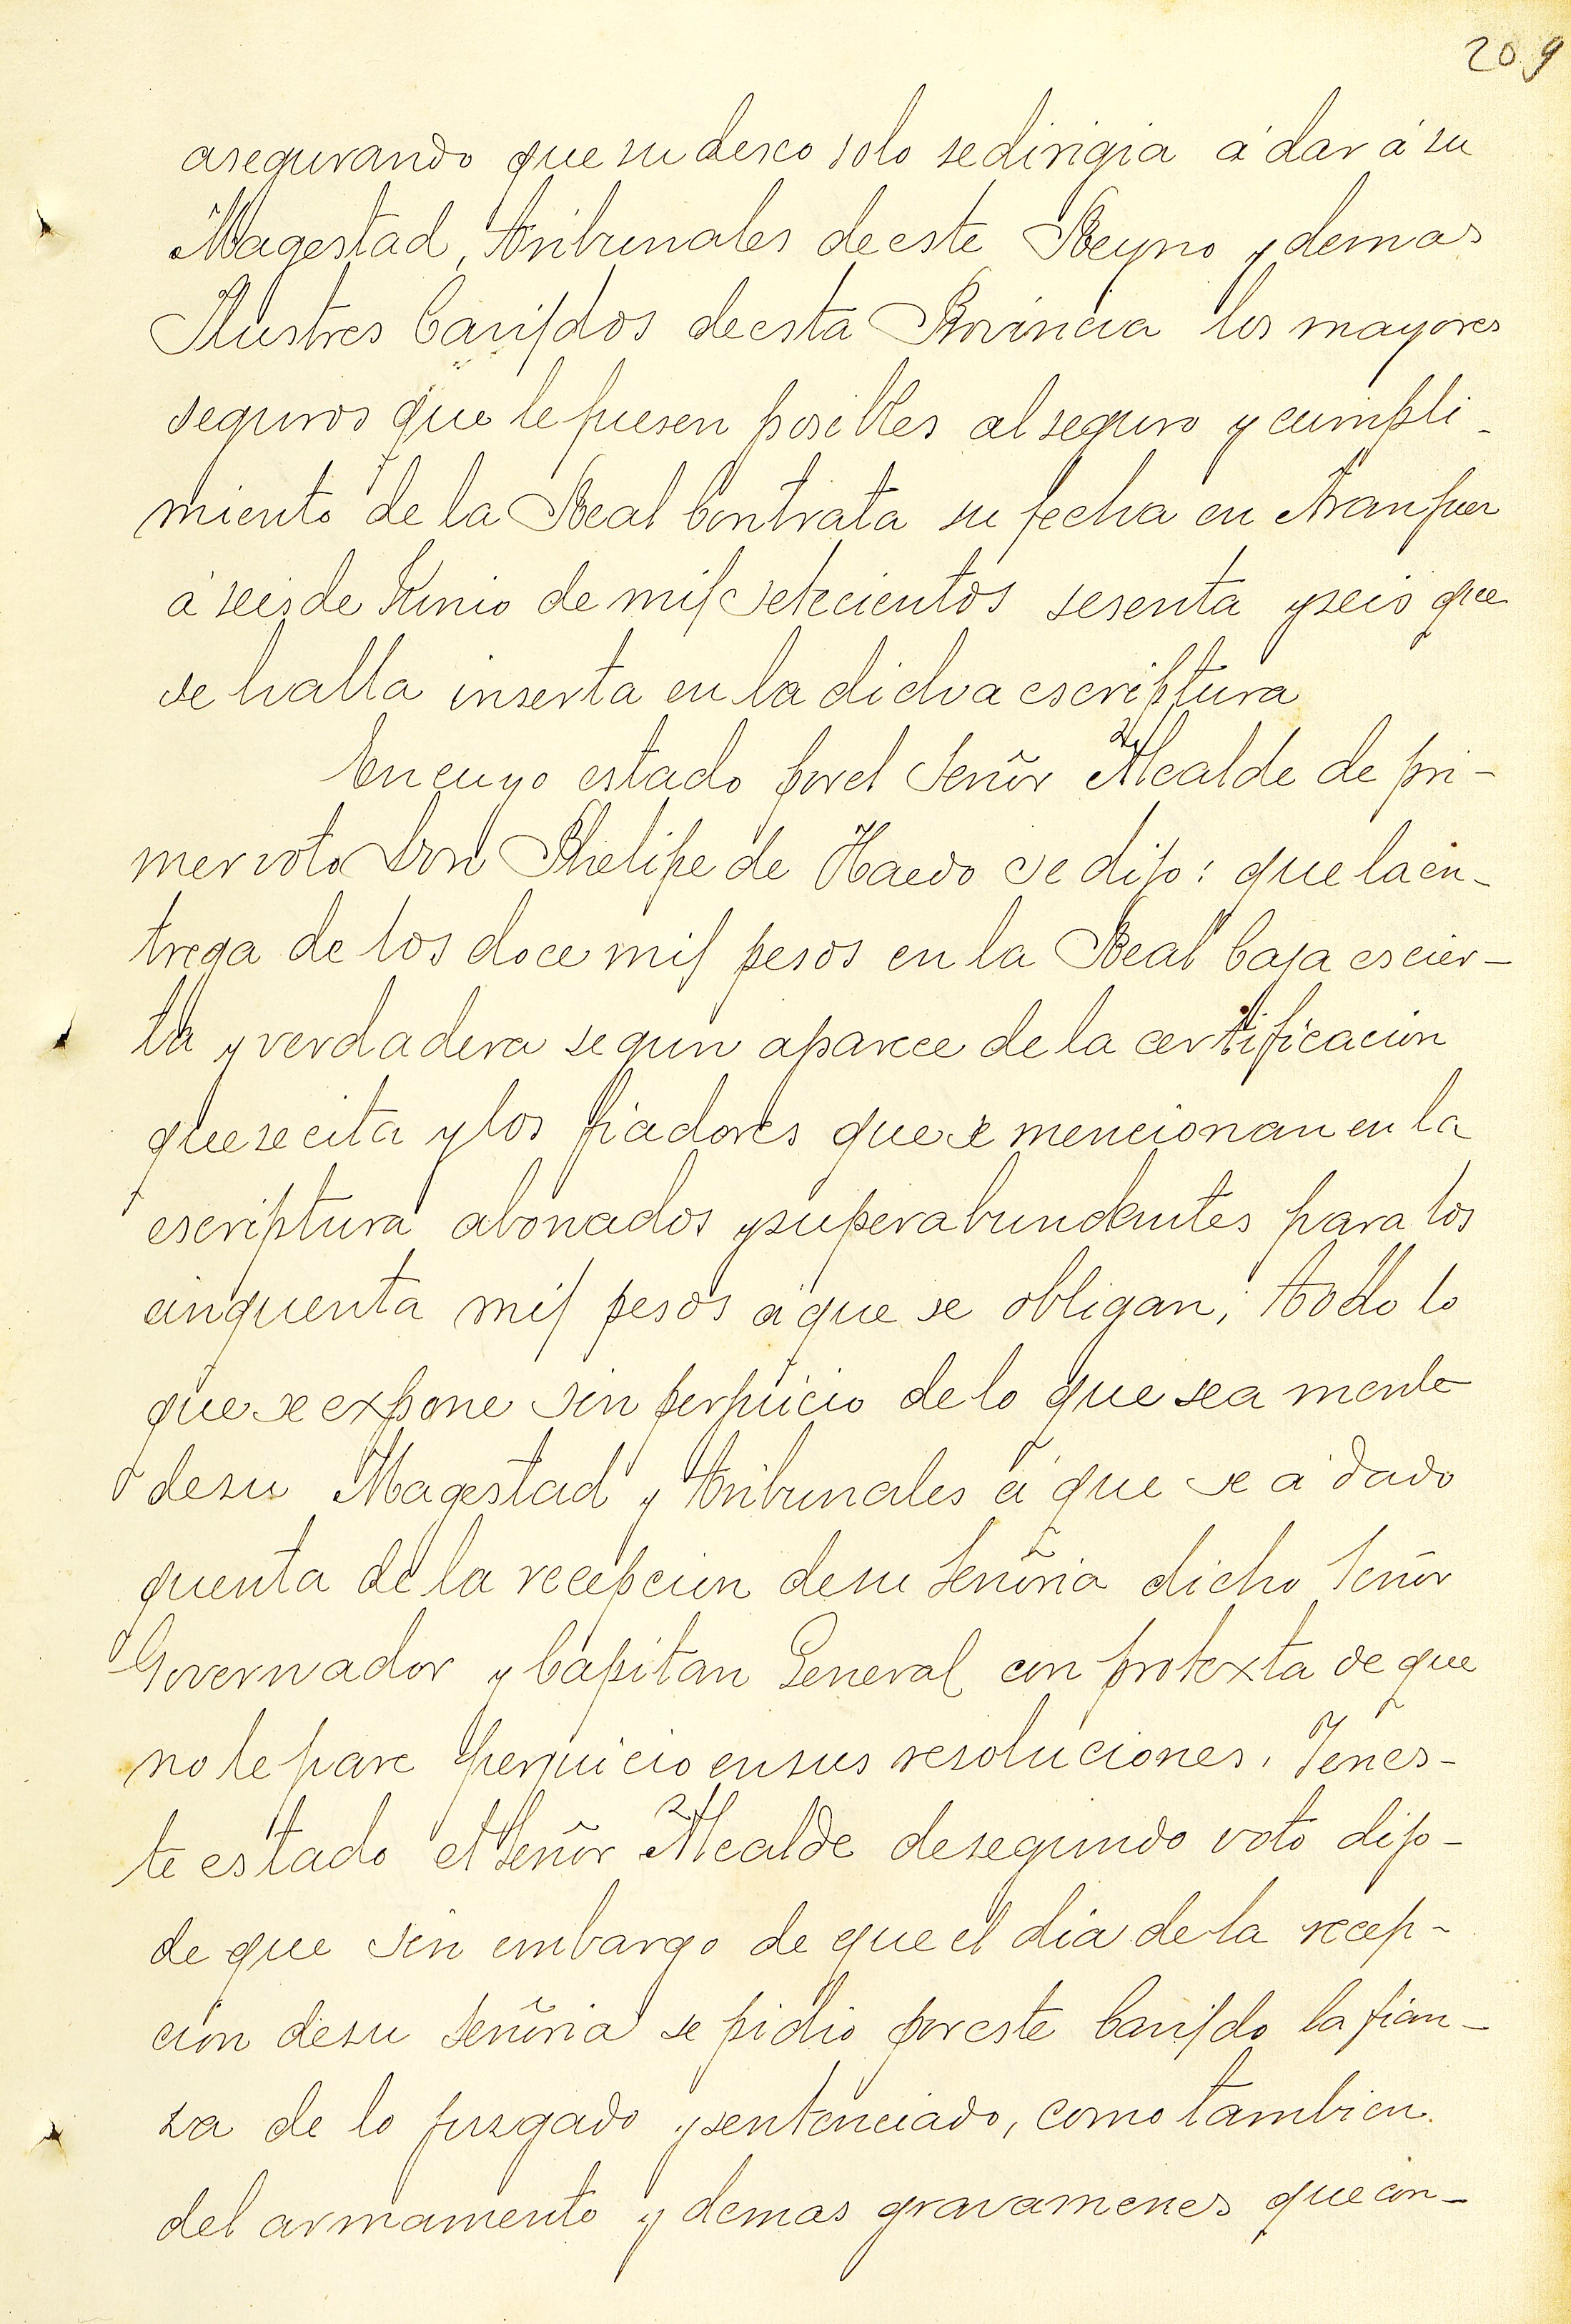 209
asegurando que su deseo solo se dirigia á dar á su
Magestad, tribunales de este Reyno y demas
Ilustres Cavildos de esta Provincia los mayores
seguros que le fuesen posibles al seguro y cumpli-
miento de la Real Contrata su fecha en Aranjuez
á seis de Junio de mil setecientos sesenta y seis que
se halla inserta en la dicha escriptura
En cuyo estado por el Señor Alcalde de pri-
mer voto Don Phelipe de Haedo se dijo: que la en-
trega de los doce mil pesos en la Real Caja es cier-
ta y verdadera segun aparece de la certificacion
que se cita y los fiadores que se mencionan en la
escriptura abonados y superabundantes para los
cinquenta mil pesos á que se obligan; todo lo
que se expone sin perjuicio de lo que sea mente
de su Magestad y tribunales á que se á dado
quenta de la recepcion de su Señoria dicho Señor
Governador y Capitan General con protexta de que
no le pare perjuicio en sus resoluciones. Y en es-
te estado el Señor Alcalde de segundo voto dijo-
de que sin embargo de que el dia de la recep-
cion de su Señoria se pidio por este Cavildo la fian-
za de lo juzgado y sentenciado, como tambien
del armamento y demas gravamenes que con-